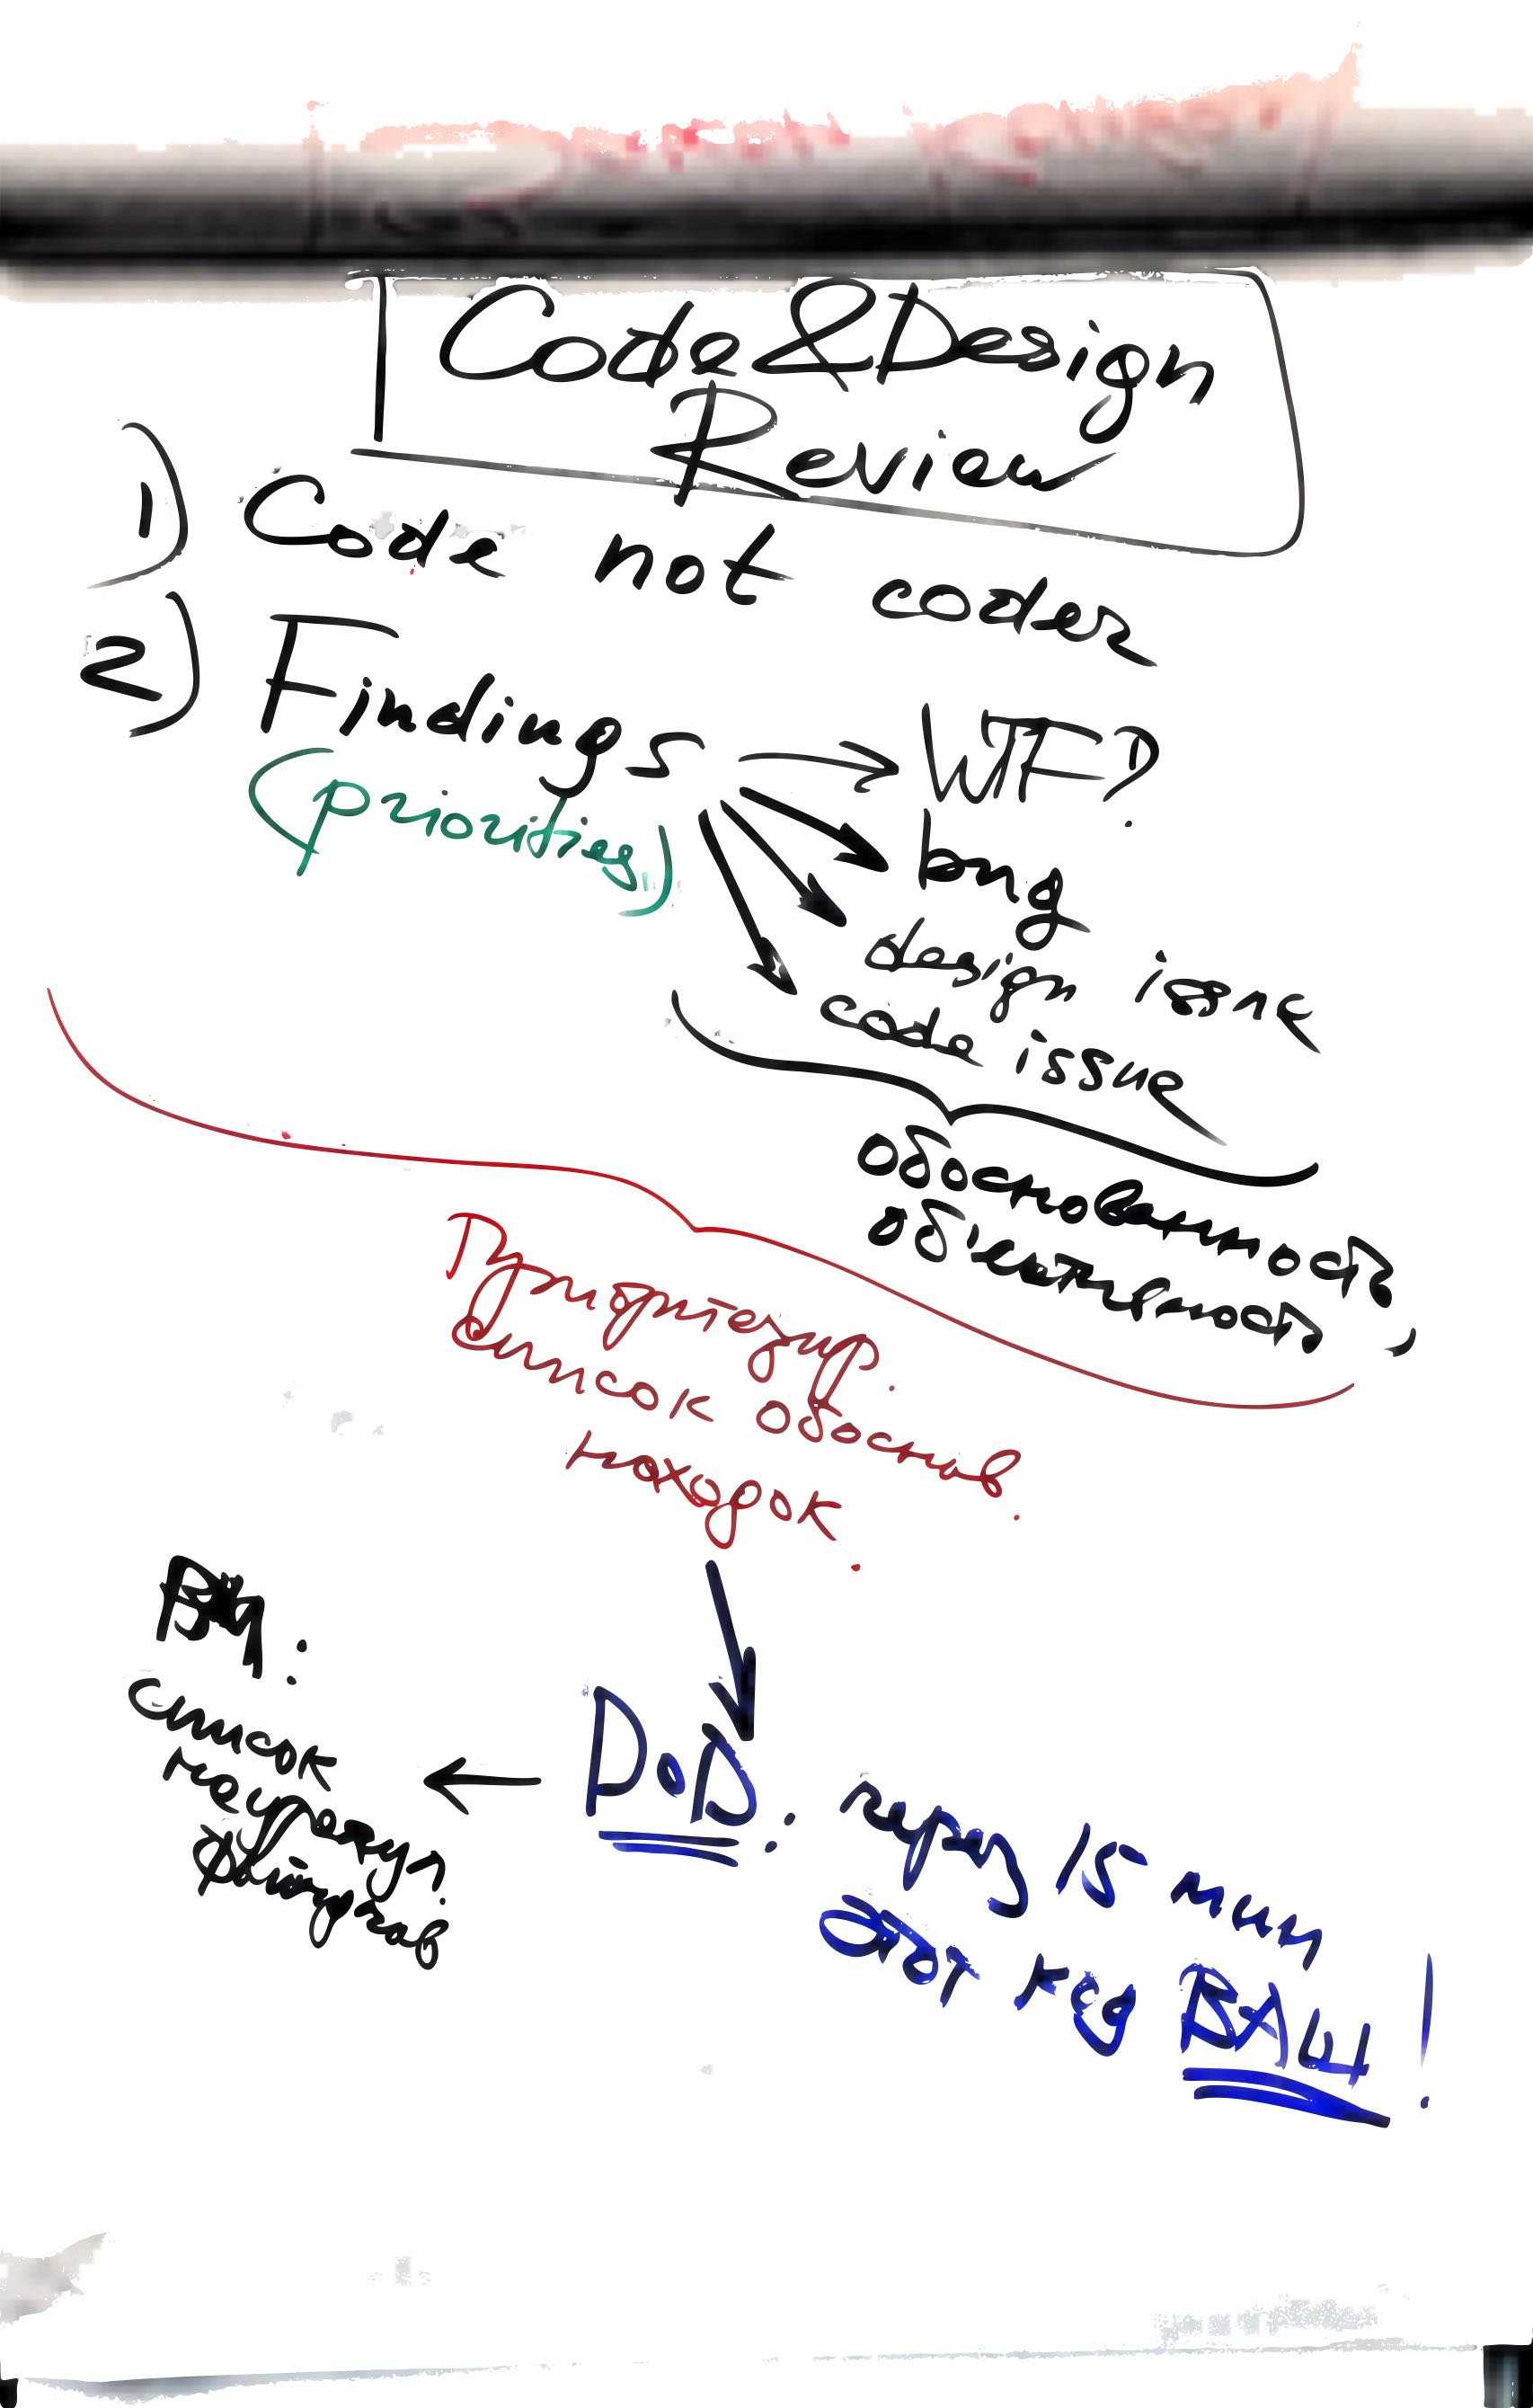 Code & Design
Review
1) Code not coder
2) Findings
(priorities)
WTF?
bug
design issue
code issue
обоснованность,
об'єктивность
список обоснов.
находок.
DoD: через 15 мин
этот код ВАШ!
список